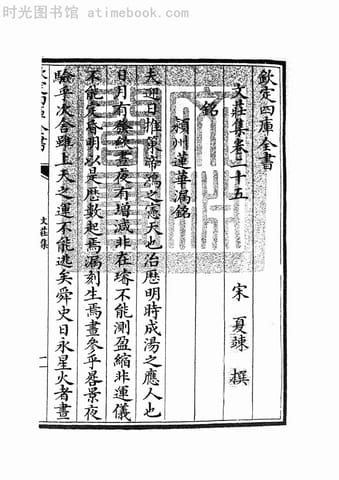 时光图书馆 - atimebook.com
欽定四庫全書
文莊集卷二十五
宋 夏竦 撰
銘
潁州蓮華漏銘
夫迎日推策帝鴻之憲天也治歷明時成湯之應人也
日月有發歛晝夜有增減非在璿不能測盈縮非運儀
不能定昏明以是歷數起焉漏刻生焉晝參乎晷景夜
驗乎次舍雖上天之運不能逃矣舜史日永星火者晝
欽定四庫全書
文莊集
一